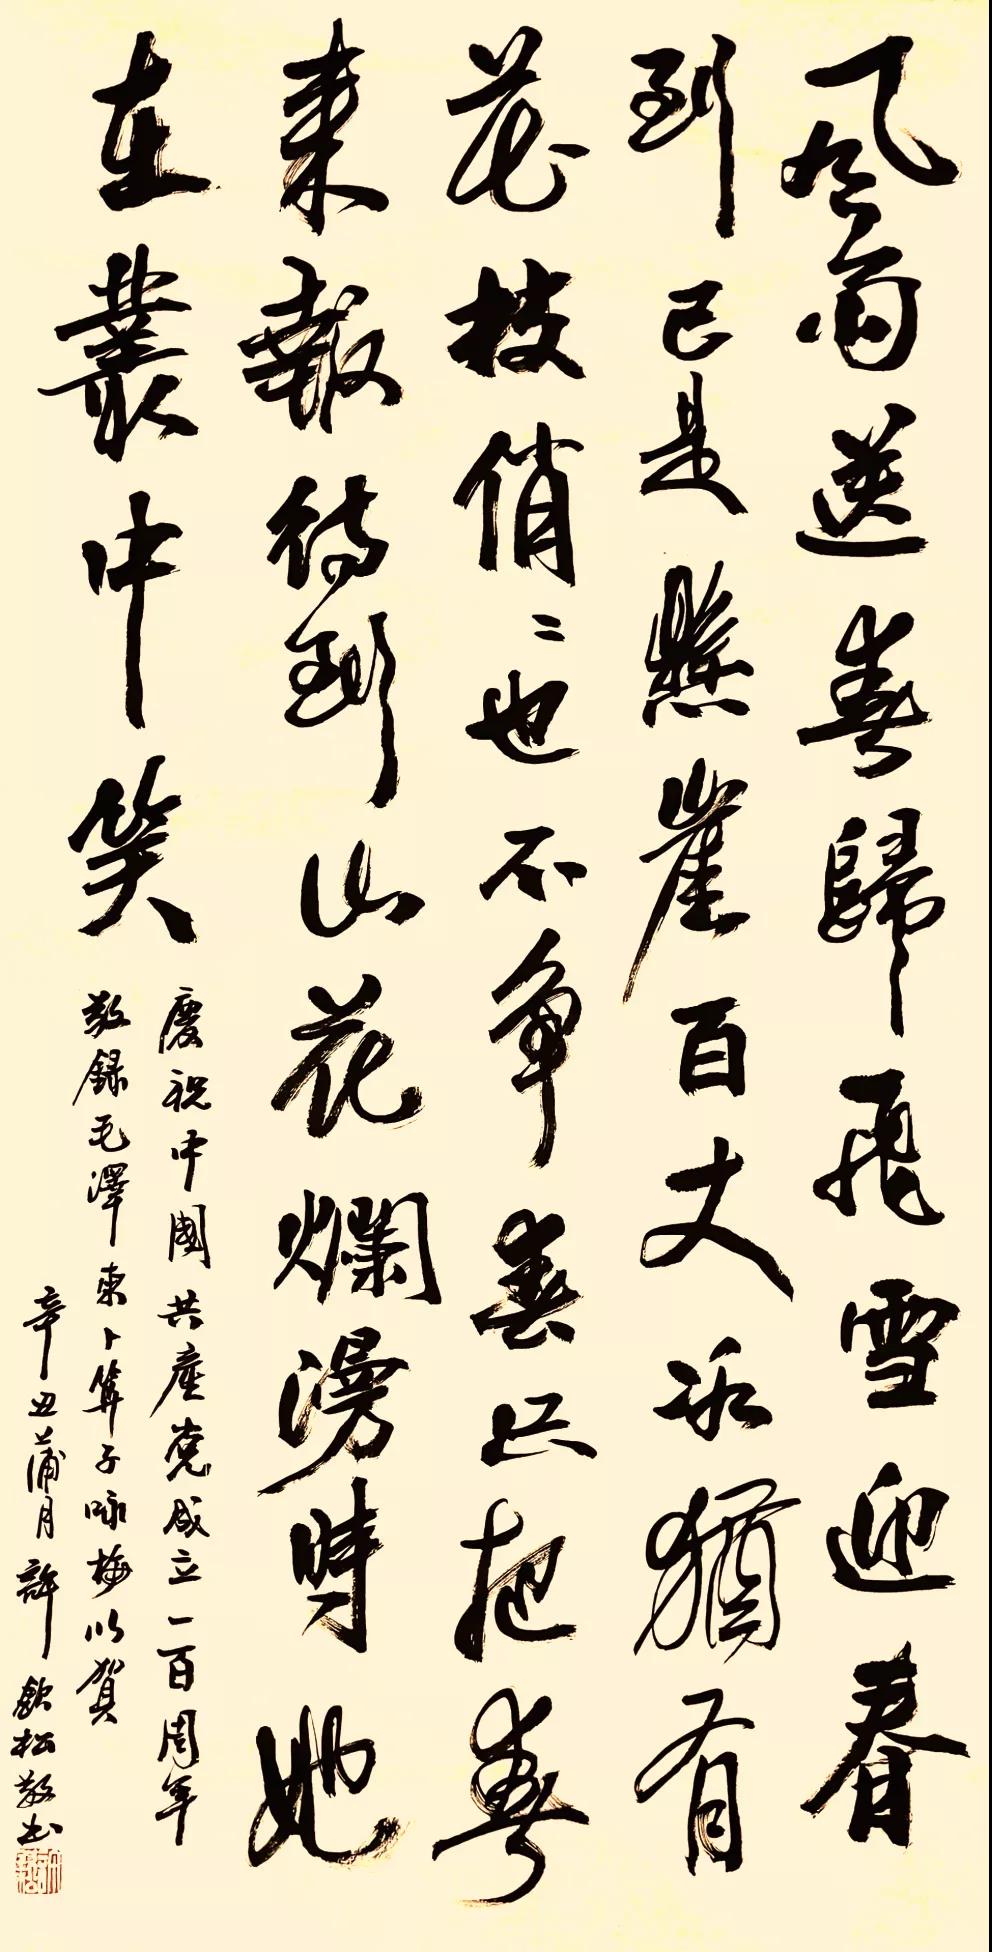 風雨送春歸飛雪迎春
到已是懸崖百丈冰猶有
花枝俏〻也不爭春只把春
來報待到山花爛漫時她
在叢中笑
慶祝中國共產党成立一百周年
敬錄毛澤東卜算子咏梅以賀
辛丑蒲月許欽松敬書